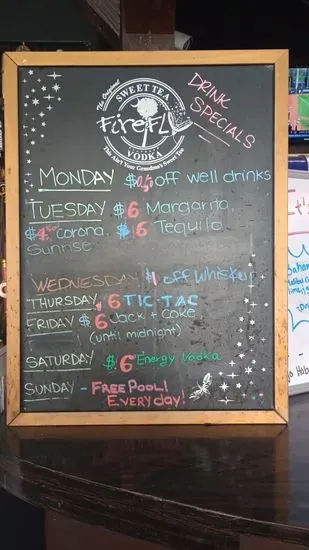 The Original
SWEET TEA
FireFLY
VODKA
This Ain't Your Grandma's Sweet Tea
DRINK
SPECIALS
MONDAY $ off well drinks
TUESDAY $6 Margarita,
$4.50 Corona, $6 Tequila
Sunrise
WEDNESDAY $1 off whiskey
THURSDAY $6 TIC-TAC
FRIDAY $6 Jack + Coke
(until midnight)
SATURDAY $6 Energy Vodka
SUNDAY - FREE POOL!
EVERYday!